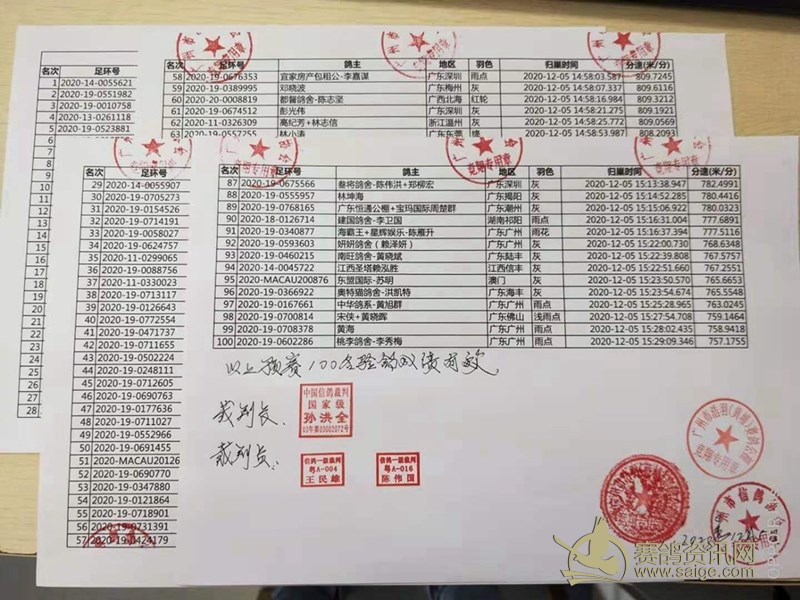 名次 足环号
1 2020-14-0055621
2 2020-19-0551982
3 2020-19-0010758
4 2020-13-0261118
5 2020-19-0523881
6
7
8
9
10
11
12
13
14
15
16
17
18
19
20
21
22
23
24
25
26
27
28
名次 足环号 鸽主 地区 羽色 归巢时间 分速(米/分)
58 2020-19-0676353 宜家房产包租公-李嘉谋 广东深圳 雨点 2020-12-05 14:58:03.587 809.7245
59 2020-19-0389995 邓晓波 广东梅州 灰 2020-12-05 14:58:07.337 809.6116
60 2020-20-0008819 都督鸽舍-陈志坚 广西北海 红轮 2020-12-05 14:58:16.984 809.3212
61 2020-19-0674512 彭光伟 广东深圳 灰 2020-12-05 14:58:21.275 809.1921
62 2020-11-0326309 高纪芳+林志信 浙江温州 灰 2020-12-05 14:58:25.772 809.0569
63 2020-19-0557255 林小涛 广东东莞 绛 2020-12-05 14:58:53.987 808.2093
名次 足环号
29 2020-14-0055907
30 2020-19-0705273
31 2020-19-0154526
32 2020-19-0714191
33 2020-19-0058027
34 2020-19-0624757
35 2020-11-0299065
36 2020-19-0088756
37 2020-11-0330023
38 2020-19-0713117
39 2020-19-0126643
40 2020-19-0772554
41 2020-19-0471737
42 2020-19-0711655
43 2020-19-0502224
44 2020-19-0248111
45 2020-19-0712605
46 2020-19-0690763
47 2020-19-0177636
48 2020-19-0711027
49 2020-19-0552966
50 2020-19-0691455
51 2020-MACAU20126
52 2020-19-0690770
53 2020-19-0347880
54 2020-19-0121864
55 2020-19-0718901
56 2020-19-0731391
57 2020-19-0424179
名次 足环号 鸽主 地区 羽色 归巢时间 分速(米/分)
87 2020-19-0675566 叁将鸽舍-陈伟洪+郑柳宏 广东深圳 灰 2020-12-05 15:13:38.947 782.4991
88 2020-19-0555957 林坤海 广东揭阳 灰 2020-12-05 15:14:52.285 780.4416
89 2020-19-0768165 广东恒通公棚+宝玛国际周楚群 广东潮州 灰 2020-12-05 15:15:06.942 780.0323
90 2020-18-0126714 建国鸽舍-李卫国 湖南祁阳 雨点 2020-12-05 15:16:31.004 777.6891
91 2020-19-0340877 海霸王+星辉娱乐-陈雁升 广东广州 雨花 2020-12-05 15:16:37.394 777.5116
92 2020-19-0593603 妍妍鸽舍（赖泽妍） 广东广州 灰 2020-12-05 15:22:00.730 768.6348
93 2020-19-0460215 南旺鸽舍-黄晓斌 广东陆丰 灰 2020-12-05 15:22:39.808 767.5757
94 2020-14-0045722 江西圣塔赖泓胜 江西信丰 灰 2020-12-05 15:22:51.660 767.2551
95 2020-MACAU200876 东盟国际-苏明 澳门 灰 2020-12-05 15:23:50.570 765.6653
96 2020-19-0366922 奥特猫鸽舍-洪凯特 广东海丰 灰 2020-12-05 15:23:54.674 765.5548
97 2020-19-0167661 中华鸽系-黄旭群 广东广州 雨点 2020-12-05 15:25:28.965 763.0245
98 2020-19-0700548 宋侠+黄晓晖 广东佛山 浅雨点 2020-12-05 15:27:54.708 759.1464
99 2020-19-0708378 黄海 广东广州 雨点 2020-12-05 15:28:02.435 758.9418
100 2020-19-0602286 桃李鸽舍-李秀梅 广东广州 雨点 2020-12-05 15:29:09.346 757.1755
以上预赛100名验鸽成绩有效
裁判长：
中国信鸽裁判
国家级
孙洪全
裁判员：
信鸽一级裁判
粤A-004
王民雄
信鸽一级裁判
粤A-016
陈伟国
竞翔专用章
赛鸽资讯网
www.saige.com